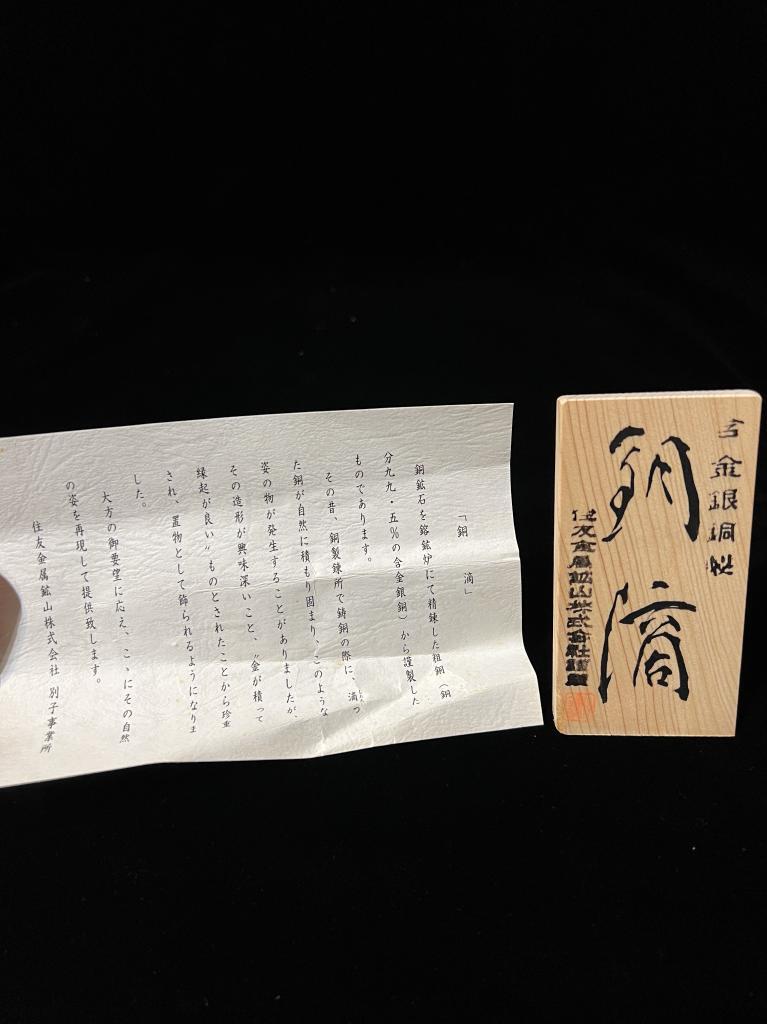 「銅滴」
銅鉱石を鎔鉱炉にて精錬した粗銅(銅
分九九・五%の含金銀銅)から謹製した
ものであります。
その昔、銅製錬所で鋳銅の際に、滴つ
た銅が自然に積もり固まり、このような
姿の物が発生することがありましたが、
その造形が興味深いこと、〝金が積って
縁起が良い〟ものとされたことから珍重
され、置物として飾られるようになりま
した。
大方の御要望に応え、こゝにその自然
の姿を再現して提供致します。
住友金属鉱山株式会社 別子事業所
含金銀銅製
銅滴
住友金属鉱山株式会社謹製